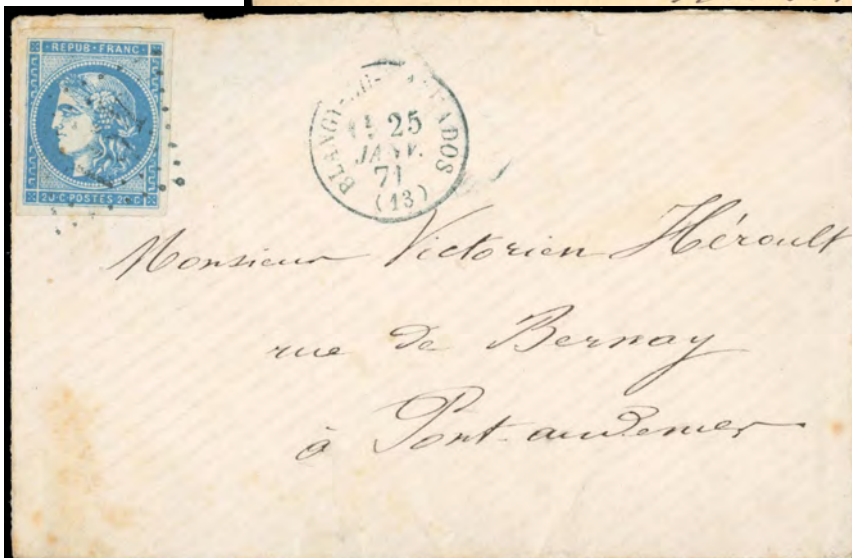 REPUB·FRANC·
20·C·POSTES 20·C
BLANGY
CALVADOS
25
JANV.
71
(13)
Monsieur Victorien Héroult
rue de Bernay
à Pont-audemer